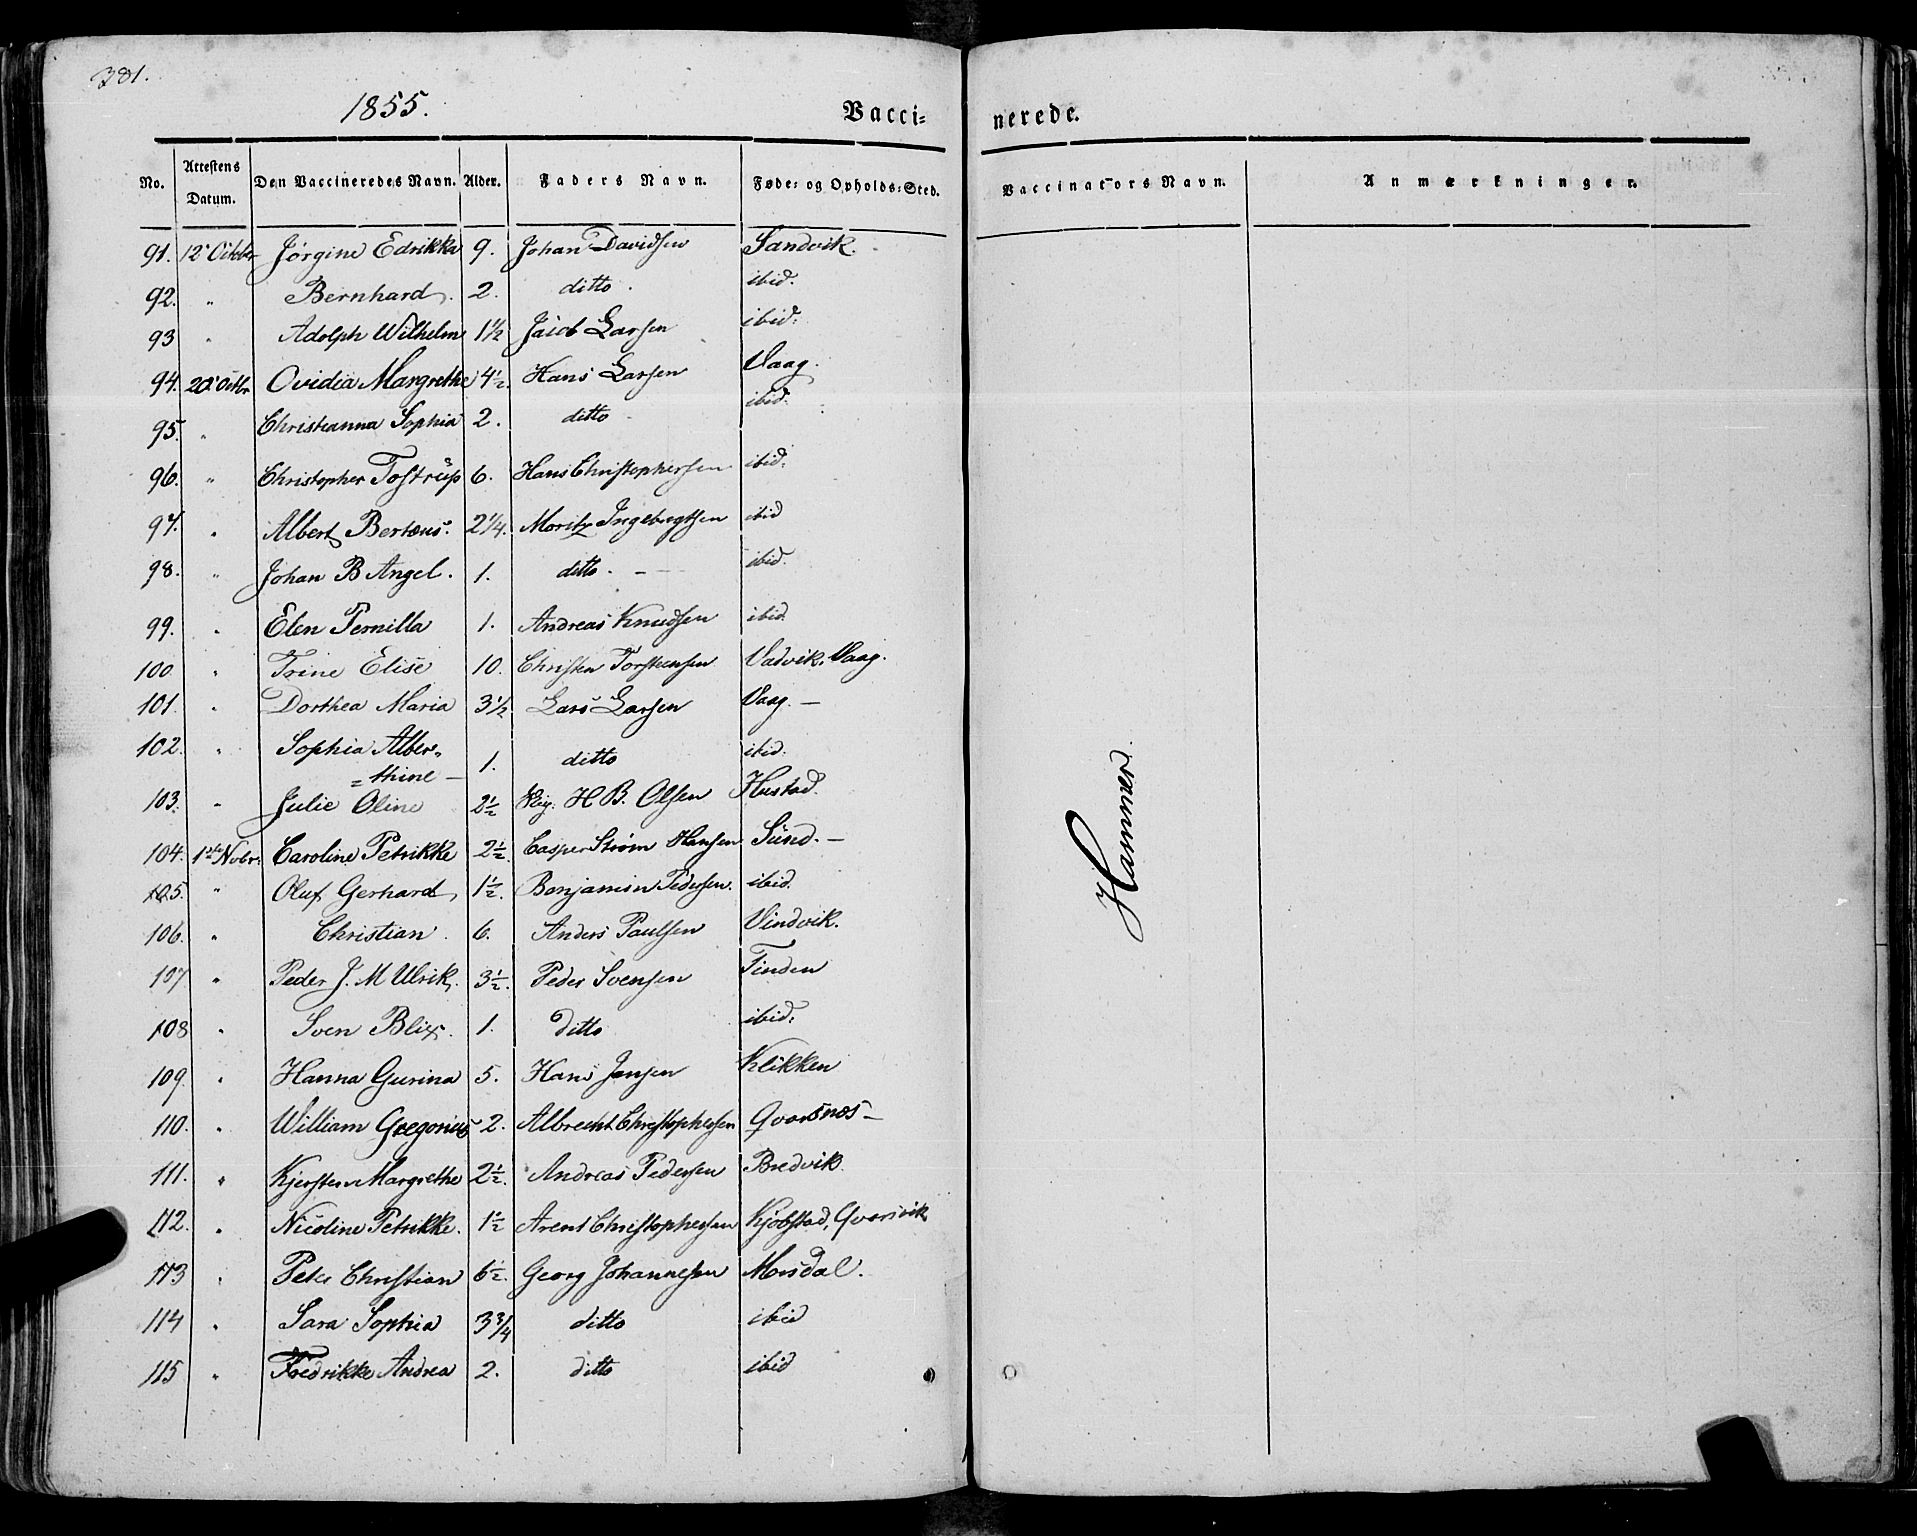 381.
1855.
Vacci= nerede.
No. Attestens Datum. Den Vaccineredes Navn. Alder. Faders Navn. Føde= og Opholds=Sted. Vaccinators Navn. Anmærkninger.
91. 12 October Jørgine Edrikka 9. Johan Davidsen Sandvik.
92. " Bernhard. 2. ditto. ibid.
93 " Adolph Wilhelm 1½ Jacob Larsen ibid:
94. 20 Octbr Ovidia Margrethe 4½. Hans Larsen Vaag.
95. " Christianna Sophia 2. ditto ibid.
96. " Christopher Tostrup 6. Hans Christophersen ibid.
97. " Albert Berteus. 2¼. Moritz Ingebregtsen ibid
98. " Johan B Angel. 1. ditto. - ibid.
99. " Elen Pernilla 1. Andreas Knudsen ibid
100 " Trine Elise 10. Christen Torstensen Vadvik, Vaag.
101. " Dorthea Maria 3½ Lars Larsen Vaag. —
102. " Sophia Alber=
=thine — 1. ditto ibid.
103. " Julie Oline 2½ H B. Olsen Hustad.
104. 1ste Nobr. Caroline Petrikke 2½. Casper Strøm Hansen Sund. —
105. " Oluf Gerhard, 1½. Benjamin Pedersen. ibid.
106. " Christian. 6. Anders Paulsen Vindvik.
107 " Peder J. M Ulrik. 3½. Peder Svensen Tinden
108 " Sven Blix. 1. ditto ibid:
109. " Hanna Gurina 5. Hans Jensen Klikken
110. " William Gregorius 2. Albrecht Christophersen Qvarsnæs —
111. " Kjersten Margrethe 2½. Andreas Pedersen Bredvik.
112. " Nicoline Petrikke. 1½ Arent Christophersen Kjøbstad, Qvarsvik
113 " Peter Christian 6½. Georg Johannesen Mosdal.
114 " Sara Sophia 3¾ ditto ibid
115 " Fredrikke Andrea 2. ditto ibid
Hammer.